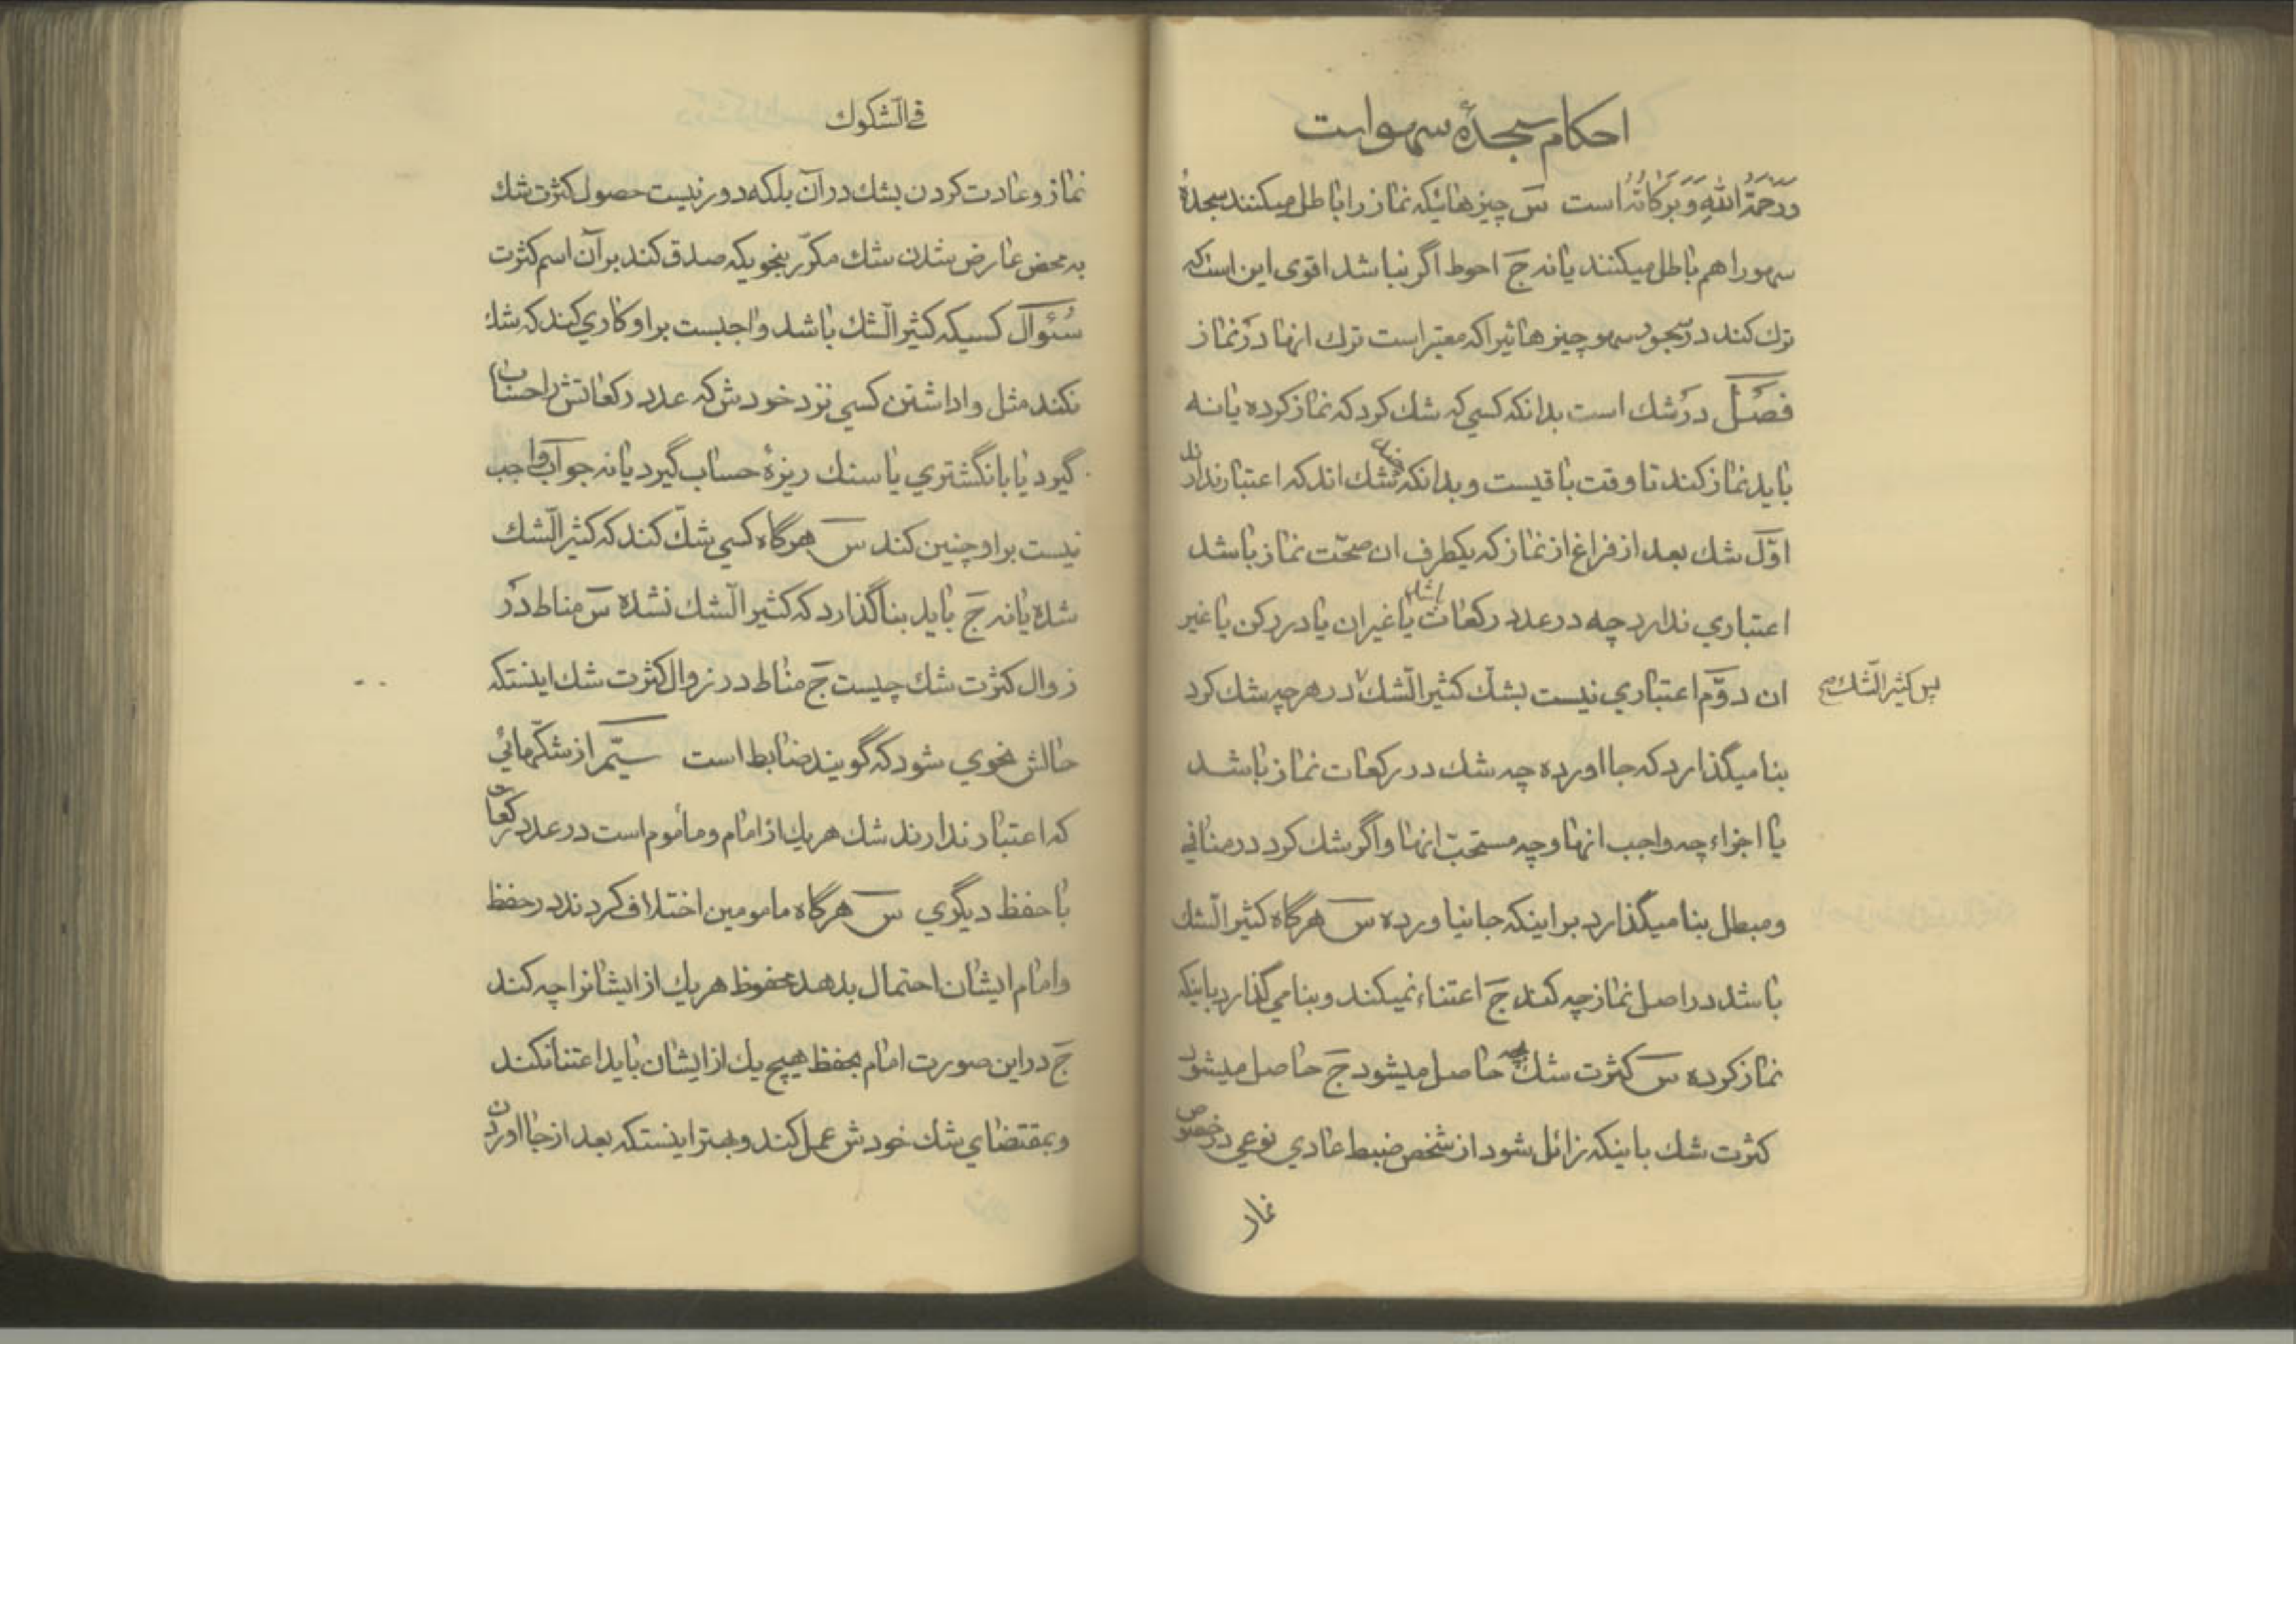 احکام سجدهٔ سهو است
وَرَحمَةُ اللهِ وَبَرَکاتُهُ است سَ چیزهائیکه نماز را باطل میکنند سجدهٔ
سهو را هم باطل میکنند یا نه جَ احوط اگر نباشد اقوی این است که
ترک کند در سجود سهو چیزهائیرا که معتبر است ترک انها در نماز
فصل در شک است بدانکه کسی که شک کرد که نماز کرده یا نه
باید نماز کند تا وقت باقیست و بدانکه شک اند که اعتبار ندارند
اوّل شک بعد از فراغ از نماز که یکطرف ان صحّت نماز باشد
اعتباری ندارد چه در عدد رکعات باشد یا غیر ان یا در رکن یا غیر
ان دوّم اعتباری نیست بشکّ کثیر الّشک در هر چه شک کرد
پس کثیر الّشک صح
بنا میگذارد که جا اورده چه شک در رکعات نماز باشد
یا اجزاء چه واجب انها و چه مستحبّ انها و اگر شک کرد در منافی
و مبطل بنا میگذارد بر اینکه جا نیاورده سَ هرگاه کثیر الّشک
باشد در اصل نماز چه کند جَ اعتناء نمیکند و بنا می گذارد باینکه
نماز کرده سَ کثرت شک بچه حاصل میشود جَ حاصل میشود
کثرت شک باینکه زائل شود از شخص ضبط عادی نوعی در خصوص
نماز
فی الّشکوک
نماز و عادت کردن بشک در آن بلکه دور نیست حصول کثرت شک
به محض عارض شدن شک مکرّر بنحویکه صدق کند بر آن اسم کثرت
سُئوال کسیکه کثیر الّشک باشد واجبست بر او کاری کند که شک
نکند مثل واداشتن کسی نزد خودش که عدد رکعاتش را حساب
گیرد یا با انگشتری یا سنک ریزهٔ حساب گیرد یا نه جواب واجب
نیست بر او چنین کند سَ هرگاه کسی شکّ کند که کثیر الّشک
شده یا نه جَ باید بنا گذارد که کثیر الّشک نشده سَ مناط در
زوال کثرت شک چیست جَ مناط در زوال کثرت شک اینستکه
حالش نحوی شود که گویند ضابط است سیّم از شکّهائی
که اعتبار ندارند شک هر یک از امام و مأموم است در عدد رکعات
با حفظ دیگری سَ هرگاه مامومین اختلاف کردند در حفظ
و امام ایشان احتمال بدهد محفوظ هر یک از ایشانرا چه کند
جَ در این صورت امام بحفظ هیچ یک از ایشان باید اعتنا نکند
و بمقتضای شک خودش عمل کند و بهتر اینستکه بعد از جا اوردن